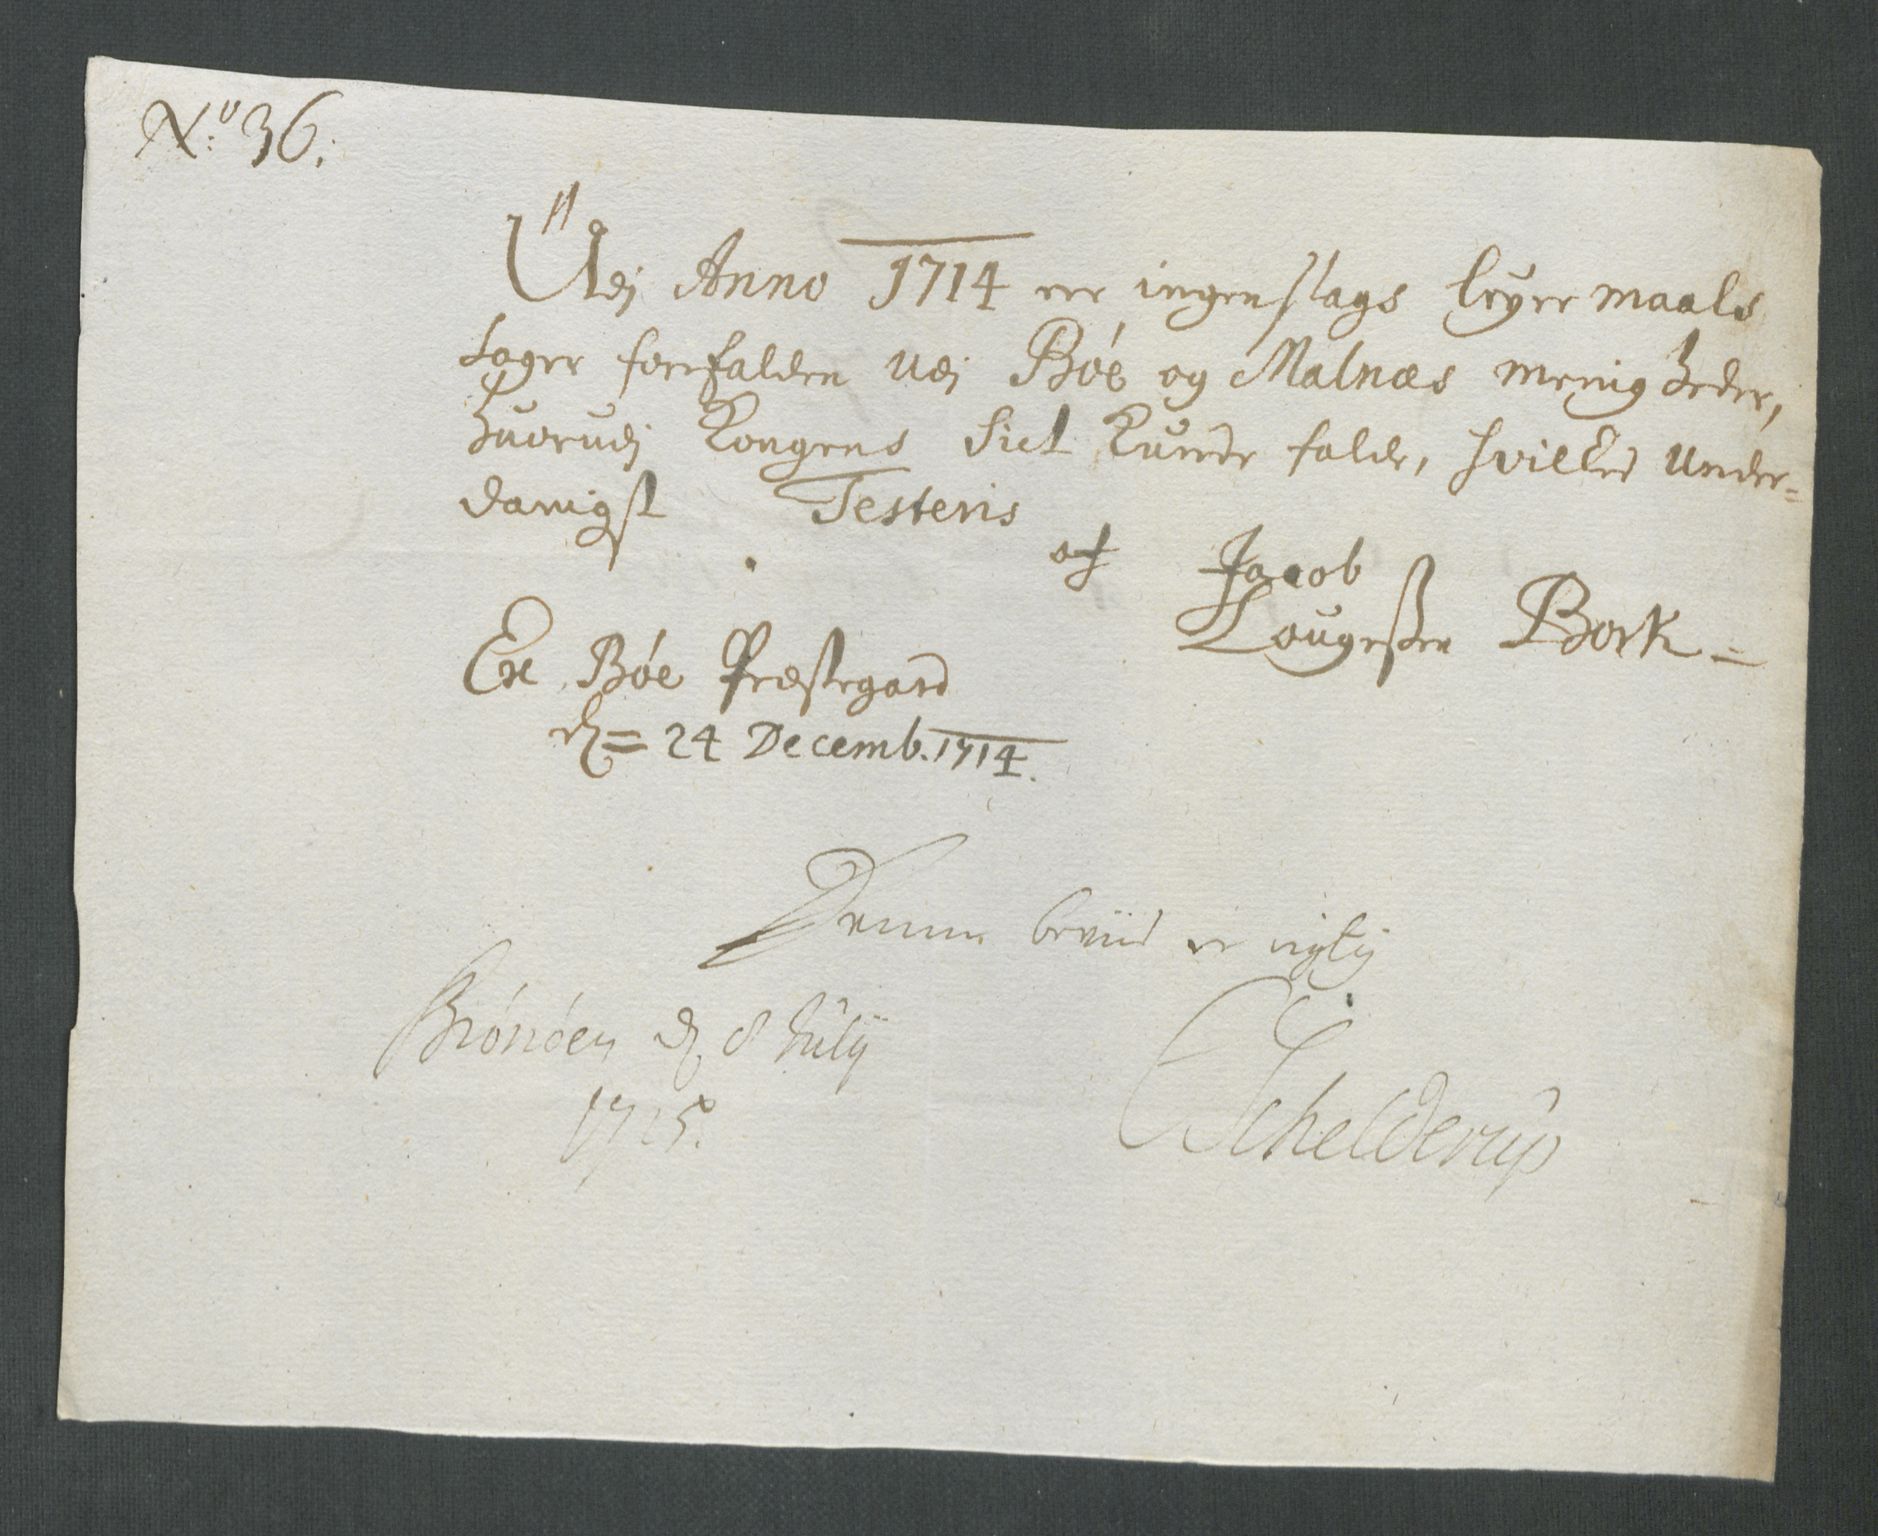 No: 36.
Udj Anno 1714 er ingenslags leyermaals
sager forefalden udj Bøe og Malnæs menigheder,
huorudj Kongens sict kunde falde, hvilket under=
danigst Testeris
af Jacob
Lougeßen Bork =
Ex Bøe Præstegard
d = 24 Decemb. 1714.
Denne beviis er rigtig
Brönöen d. 8 July
1715.
Schelderup